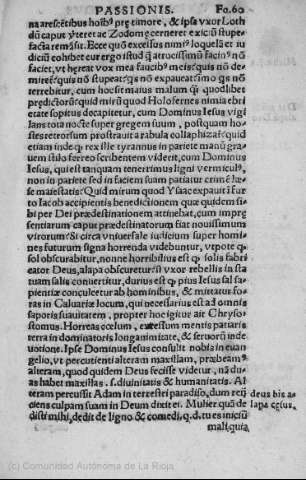 PASSIONIS. Fo.60
na arescẽtibus hoĩbꝰ prę timore, & ipsa vxor Loth
dũ caput ꝟteret ac Zodomę cerneret exiciũ stupe-
facta remãsit. Ecce quã excessus nimꝰ loquelã et iu
diciũ cohibet cur ergo istud q̃ atrocissimũ facinꝰ nõ
faciet, vt hęreat vox mea faucibꝰ meis: quis nõ de-
terrebitur, cum hoc sit maius malum q̃ quodlibet
predictorũ: quid mirũ quod Holofernes nimia ebri
etate sopitus decapitetur, cum Dominus Iesus vigi
lans tota nocte super gregem suum, postquam ho-
stes retrorsum prostrauit a rabula collaphizat̃: quid
etiam inde q̃ rex ille tyrannus in pariete manũ gra-
uem stilo ferreo scribentem viderit, cum Dominus
Iesus, qui est tanquam tenerrimus ligni vermiculꝰ,
non in pariete sed in faciem suam patiatur crimẽ lę-
se maiestatis: Quid mirum quod Ysaac expauit ĩ fur
to Iacob accipientis benedictionem quæ quidem si-
bi per Dei prædestinationem attinebat, cum impræ
sentiarum caput prædestinatorum fiat nouissimum
virorum: Si circa vniuersale iudicium super homi-
nes futurum signa horrenda videbuntur, vtpote ꝙ
sol obscurabitur, nonne horribilius est ꝙ solis fabri
cator Deus, alapa obscuretur: si vxor rebellis in sta
tuam salis conuertitur, durius est ꝙ pius Iesus sal sa-
pientiæ conculcetur ab hominibus, & mittatur fo-
ras in Caluariæ locum, qui necessarius est ad omnis
saporis suauitatem, propter hoc igitur ait Chryso-
stomus. Horreas cœlum, extestum mentis pauearis
terra in dominatoris longanimitate, & seruorũ inde
uotione. Ipse Dominus Iesus consulit nobis in euan
gelio, vt percutienti alteram maxillam, præbeamꝰ
alteram, quod quidem Deus fecisse videtur, nã du-
as habet maxillas. s. diuinitatis & humanitatis. Al
teram percussit Adam in terrestri paradiso, dum reij
ciens culpam suam in Deum dixit ei. Mulier quã de
disti mihi, dedit de ligno & comedi, q. d. tu es in
mali, quia
deus bis a-
lapa
(c) Comunidad Autónoma de La Rioja